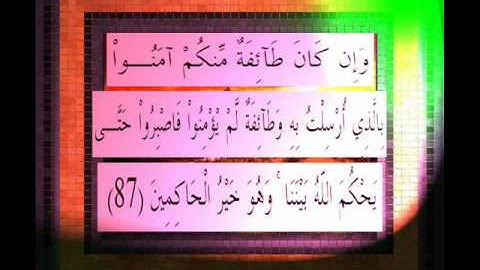 وَإِن كَانَ طَآئِفَةٌ مِّنكُمْ آمَنُـــواْ
بِالَّذِي أُرْسِلْتُ بِهِ وَطَآئِفَةٌ لَّمْ يُؤْمِنُواْ فَاصْبِرُواْ حَتَّــى
يَحْكُمَ اللّهُ بَيْنَنَا ۚ وَهُوَ خَيْرُ الْحَاكِمِينَ (87)